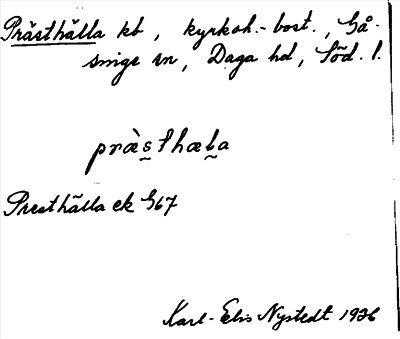 Prästhälla kb, kyrkoh.-bost., Gå-
singe sn, Daga hd, Söd. l.
præ̀s̱thæḻa
Presthälla ek G67
Karl-Elis Nystedt 1936